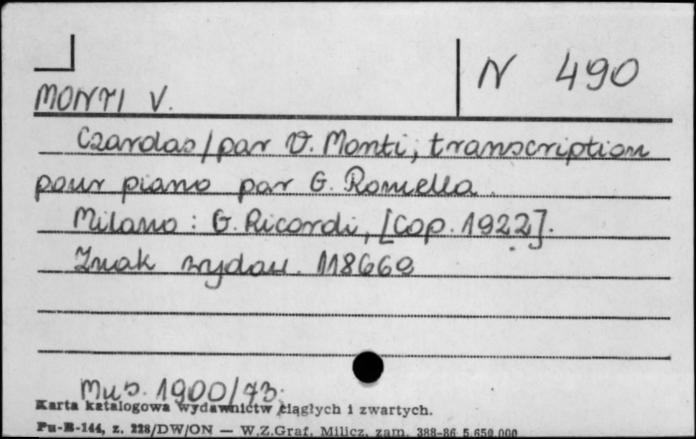 N 490
MONTI V.
Czardas/par V. Monti; transcription
pour piano par G. Romella.
Milano: G. Ricordi, [Cop. 1922].
Znak wydaw. 118660
Mus. 1900/73.
Karta katalogowa wydawnictw ciągłych i zwartych.
Pu-B-144, z. 228/DW/ON — W.Z.Graf. Milicz, zam. 388-86 5.650.000